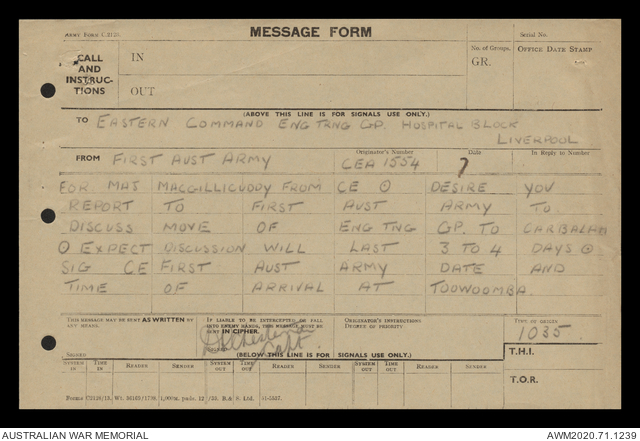 ARMY FORM C.2128.
MESSAGE FORM
Serial No.
CALL AND INSTRUCTIONS
IN
OUT
No. of Groups.
GR.
OFFICE DATE STAMP
(ABOVE THIS LINE IS FOR SIGNALS USE ONLY.)
TO EASTERN COMMAND ENG TRNG GP. HOSPITAL BLOCK
LIVERPOOL
FROM FIRST AUST ARMY
Originator's Number
CEA 1554
Date
7
In Reply to Number
FOR MAJ MACGILLICUDDY FROM CE ⊙ DESIRE YOU
REPORT TO FIRST AUST ARMY TO
DISCUSS MOVE OF ENG TNG GP. TO CARBALAH
⊙ EXPECT DISCUSSION WILL LAST 3 TO 4 DAYS ⊙
SIG CE FIRST AUST ARMY DATE AND
TIME OF ARRIVAL AT TOOWOOMBA
THIS MESSAGE MAY BE SENT AS WRITTEN BY
SIGNED
IF LIABLE TO BE INTERCEPTED OR FALL INTO ENEMY HANDS, THIS MESSAGE MUST BE SENT IN CIPHER.
Capt
ORIGINATOR'S INSTRUCTIONS
DEGREE OF PRIORITY
TIME OF ORIGIN
1035
(BELOW THIS LINE IS FOR SIGNALS USE ONLY.)
T.H.I.
SYSTEM IN
TIME IN
READER
SENDER
SYSTEM OUT
TIME OUT
READER
SENDER
SYSTEM OUT
TIME OUT
READER
SENDER
T.O.R.
AUSTRALIAN WAR MEMORIAL
AWM2020.71.1239